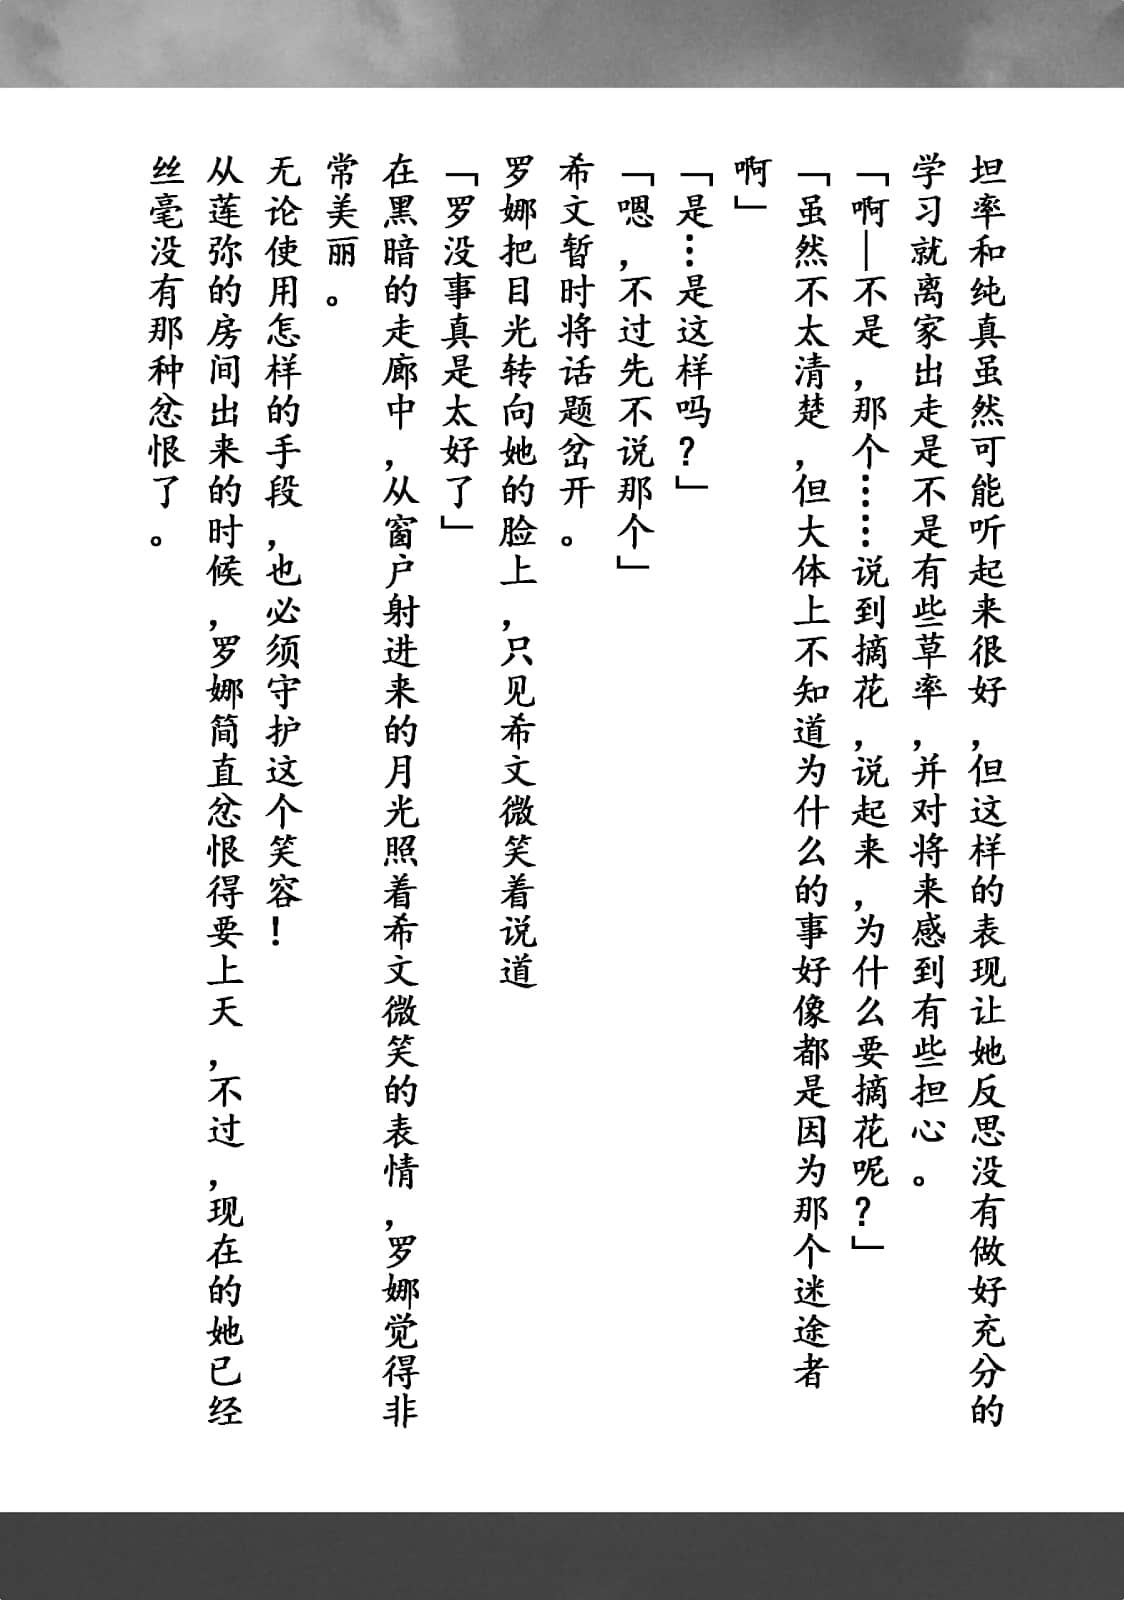 坦率和纯真虽然可能听起来很好，但这样的表现让她反思没有做好充分的
学习就离家出走是不是有些草率，并对将来感到有些担心。
「啊—不是，那个……说到摘花，说起来，为什么要摘花呢？」
「虽然不太清楚，但大体上不知道为什么的事好像都是因为那个迷途者
啊」
「是…是这样吗？」
「嗯，不过先不说那个」
希文暂时将话题岔开。
罗娜把目光转向她的脸上，只见希文微笑着说道
「罗没事真是太好了」
在黑暗的走廊中，从窗户射进来的月光照着希文微笑的表情，罗娜觉得非
常美丽。
无论使用怎样的手段，也必须守护这个笑容！
从莲弥的房间出来的时候，罗娜简直忿恨得要上天，不过，现在的她已经
丝毫没有那种忿恨了。